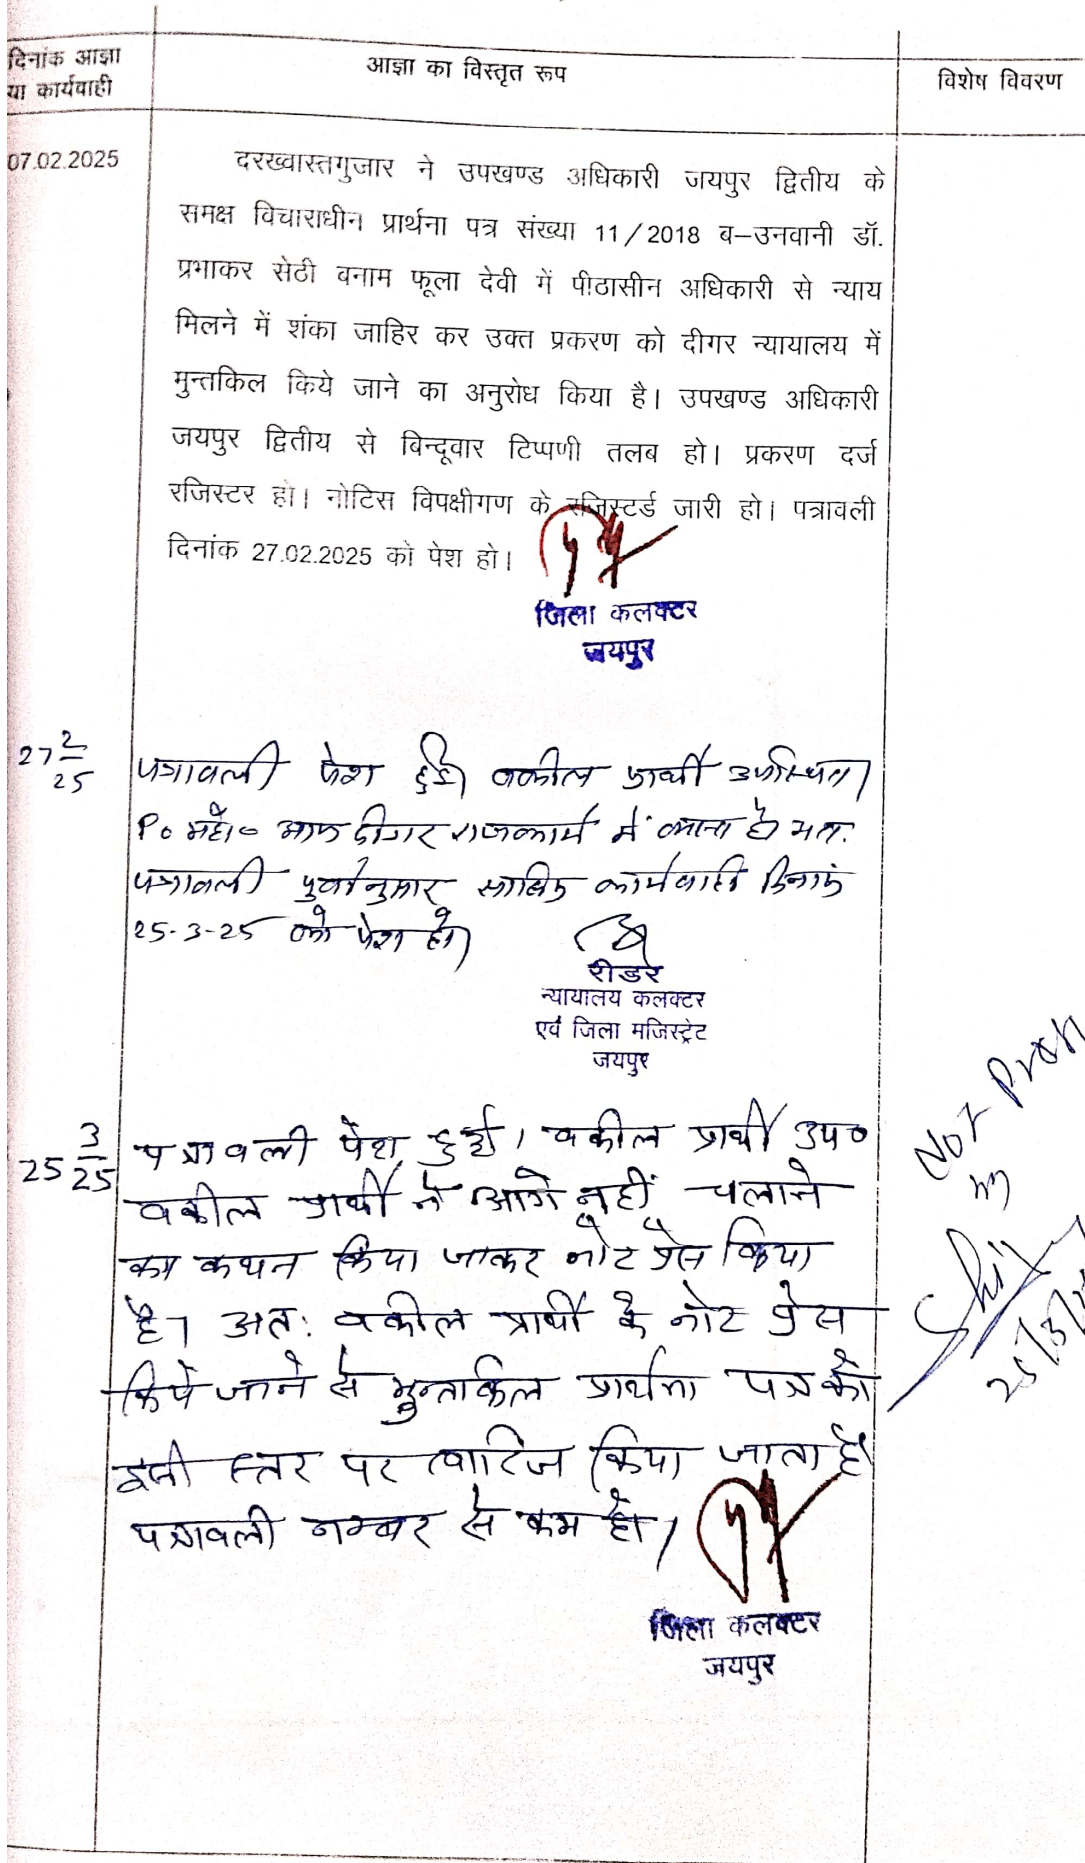 दिनांक आज्ञा
या कार्यवाही
आज्ञा का विस्तृत रूप
विशेष विवरण
07.02.2025
दरख्वास्तगुजार ने उपखण्ड अधिकारी जयपुर द्वितीय के
समक्ष विचाराधीन प्रार्थना पत्र संख्या 11/2018 ब–उनवानी डॉ.
प्रभाकर सेठी बनाम फूला देवी में पीठासीन अधिकारी से न्याय
मिलने में शंका जाहिर कर उक्त प्रकरण को दीगर न्यायालय में
मुन्तकिल किये जाने का अनुरोध किया है। उपखण्ड अधिकारी
जयपुर द्वितीय से बिन्दूवार टिप्पणी तलब हो। प्रकरण दर्ज
रजिस्टर हो। नोटिस विपक्षीगण के रजिस्टर्ड जारी हो। पत्रावली
दिनांक 27.02.2025 को पेश हो।
जिला कलक्टर
जयपुर
27 2/25
पत्रावली पेश हुई। वकील प्रार्थी उपस्थित।
P० महो० आज दीगर राजकार्य में व्यस्त है। अतः
पत्रावली पुर्वानुसार कार्यवाही दिनांक
25-3-25 को पेश हो।
रीडर
न्यायालय कलक्टर
एवं जिला मजिस्ट्रेट
जयपुर
25 3/25
पत्रावली पेश हुई। वकील प्रार्थी उप०
वकील प्रार्थी ने आगे नहीं चलाने
का कथन किया जाकर नोट प्रेस किया
है। अतः वकील प्रार्थी के नोट प्रेस
किये जाने से मुन्तकिल प्रार्थना पत्र को
इसी स्तर पर खारिज किया जाता है।
पत्रावली नम्बर से कम हो।
जिला कलक्टर
जयपुर
Not
25/3/